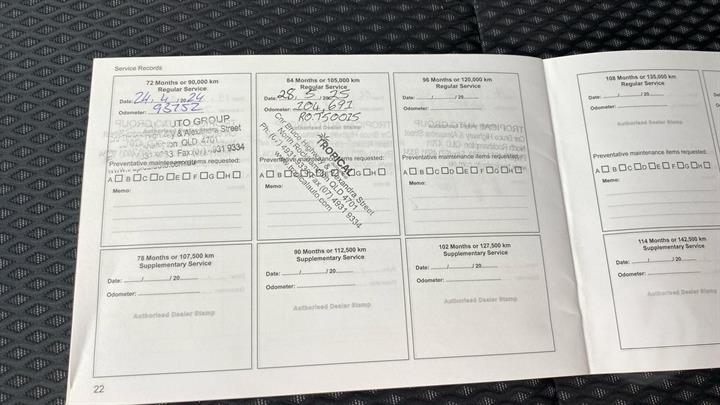 Service Records
72 Months or 90,000 km
Regular Service
Date: 24, 4, 2024
Odometer: 93152
AUTO GROUP
y & Alexandra Street
on QLD 4701
33 Fax (07) 4931 9334
Preventative maintenance items requested:
A B C D E F G H
Memo:
84 Months or 105,000 km
Regular Service
Date: 28, 5, 25
Odometer: 104,691
RO.T50025
Authorised Dealer Stamp
TROPICAL
Cnr Bruce Highway & Alexandra Street
North Rockhampton QLD 4701
Fax (07) 4931 9334
Preventative maintenance items requested:
A B C D E F G H
Memo:
96 Months or 120,000 km
Regular Service
Date: / / 20
Odometer:
Preventative maintenance items requested:
A B C D E F G H
Memo:
108 Months or 135,000 km
Regular Service
Date: / / 20
Odometer:
Authorised Dealer Stamp
Preventative maintenance items requested:
A B C D E F G H
Memo:
78 Months or 107,500 km
Supplementary Service
Date: / / 20
Odometer:
Authorised Dealer Stamp
90 Months or 112,500 km
Supplementary Service
Date: / / 20
Odometer:
Authorised Dealer Stamp
102 Months or 127,500 km
Supplementary Service
Date: / / 20
Odometer:
Authorised Dealer Stamp
114 Months or 142,500 km
Supplementary Service
Date: / / 20
Odometer:
Authorised Dealer Stamp
22